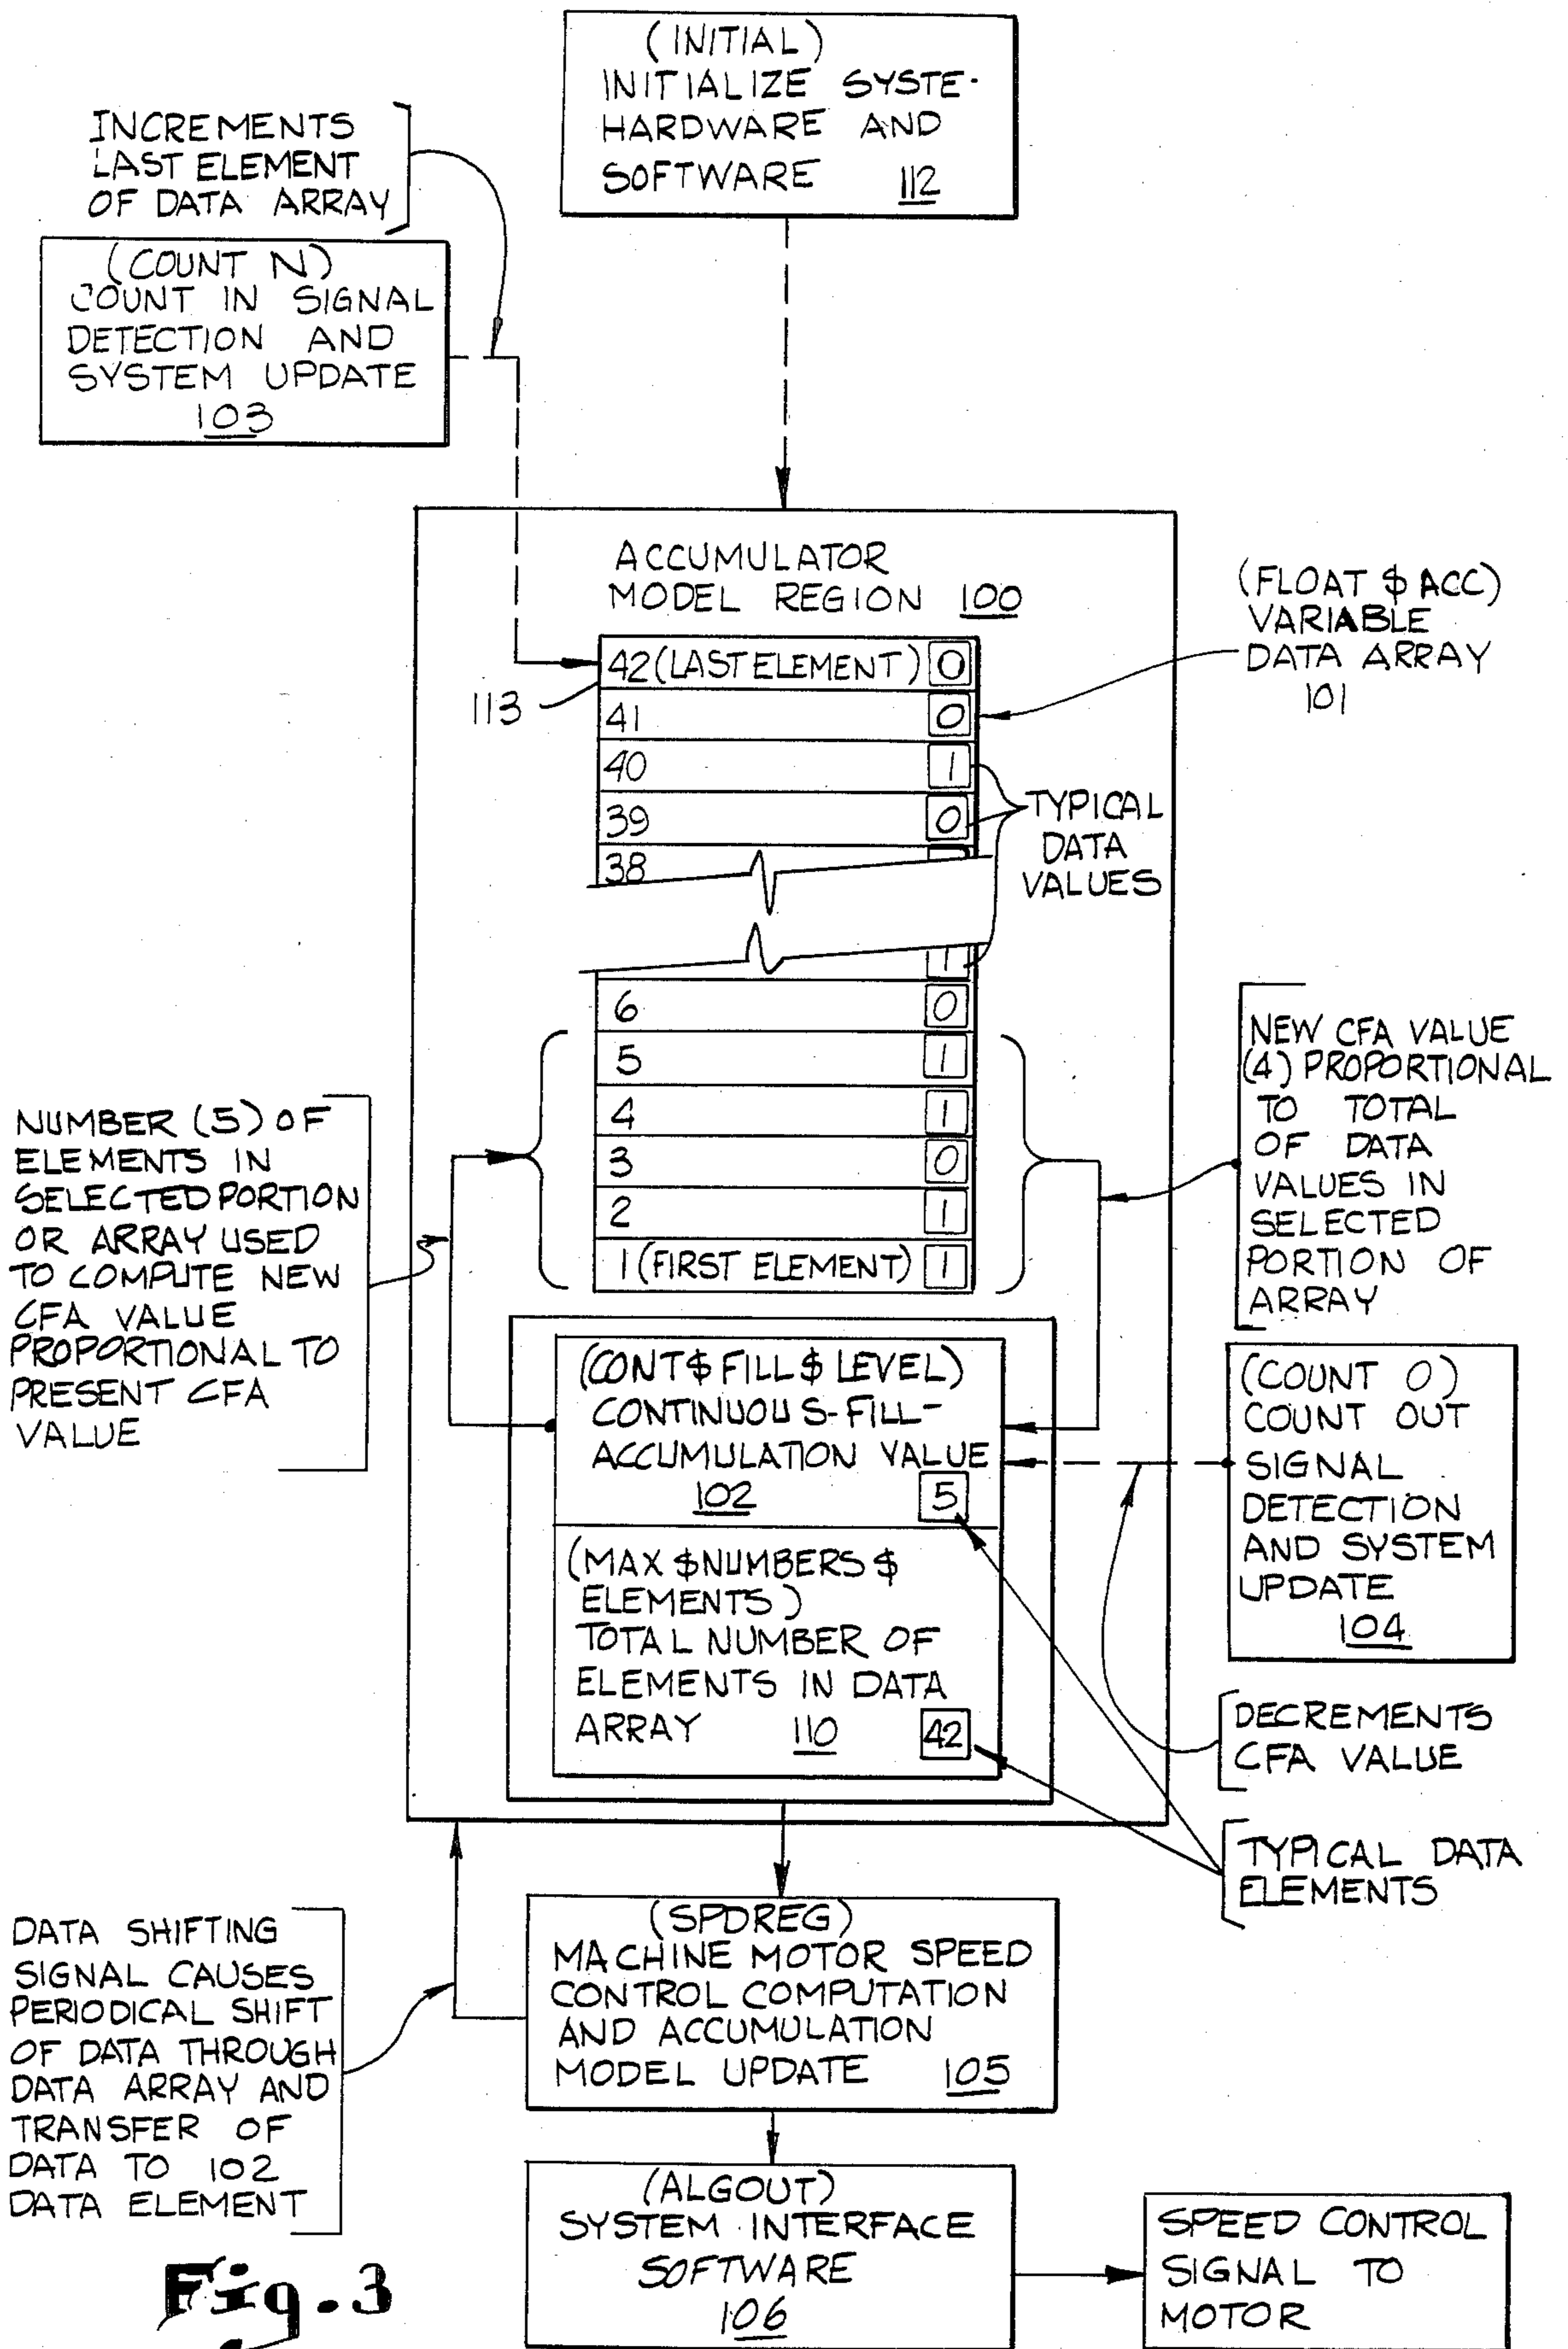 (INITIAL)
INITIALIZE SYSTE-
HARDWARE AND
SOFTWARE 112
INCREMENTS
LAST ELEMENT
OF DATA ARRAY
(COUNT N)
COUNT IN SIGNAL
DETECTION AND
SYSTEM UPDATE
103
ACCUMULATOR
MODEL REGION 100
(FLOAT $ ACC)
VARIABLE
DATA ARRAY
101
113
42 (LAST ELEMENT) 0
41 0
40 1
39 0
38
TYPICAL
DATA
VALUES
1
6 0
5 1
4 1
3 0
2 1
1 (FIRST ELEMENT) 1
NUMBER (5) OF
ELEMENTS IN
SELECTED PORTION
OR ARRAY USED
TO COMPUTE NEW
CFA VALUE
PROPORTIONAL TO
PRESENT CFA
VALUE
NEW CFA VALUE
(4) PROPORTIONAL
TO TOTAL
OF DATA
VALUES IN
SELECTED
PORTION OF
ARRAY
(CONT$ FILL$ LEVEL)
CONTINUOUS-FILL-
ACCUMULATION VALUE
102 5
(MAX $NUMBERS $
ELEMENTS)
TOTAL NUMBER OF
ELEMENTS IN DATA
ARRAY 110 42
(COUNT O)
COUNT OUT
SIGNAL
DETECTION
AND SYSTEM
UPDATE
104
DECREMENTS
CFA VALUE
TYPICAL DATA
ELEMENTS
DATA SHIFTING
SIGNAL CAUSES
PERIODICAL SHIFT
OF DATA THROUGH
DATA ARRAY AND
TRANSFER OF
DATA TO 102
DATA ELEMENT
(SPDREG)
MACHINE MOTOR SPEED
CONTROL COMPUTATION
AND ACCUMULATION
MODEL UPDATE 105
(ALGOUT)
SYSTEM INTERFACE
SOFTWARE
106
SPEED CONTROL
SIGNAL TO
MOTOR
Fig. 3